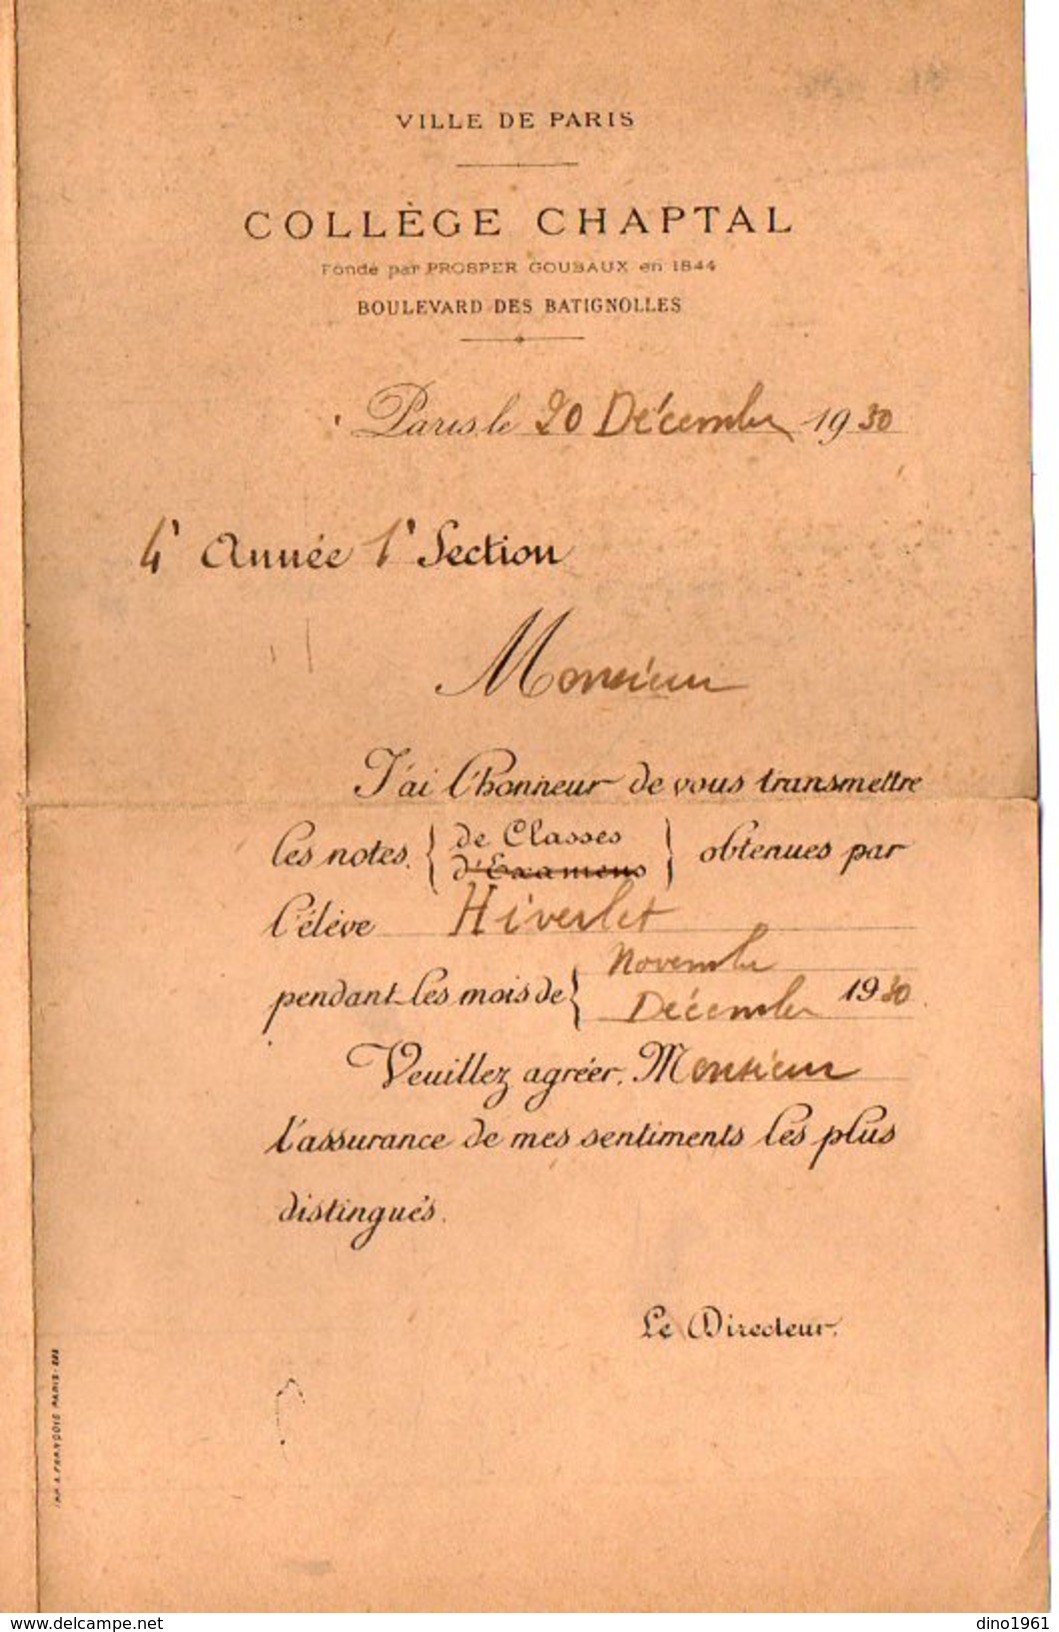 VILLE DE PARIS
COLLÈGE CHAPTAL
Fondé par PROSPER GOUBAUX en 1844
BOULEVARD DES BATIGNOLLES
Paris, le 20 Décembre 1930
4e Année 1e Section
Monsieur
J'ai l'honneur de vous transmettre
les notes { de Classes
d'Examens } obtenues par
l'élève Hiverlet
pendant les mois de { Novembre
Décembre 1930.
Veuillez agréer, Monsieur
l'assurance de mes sentiments les plus
distingués.
Le Directeur.
IMP. A. FRANÇOIS PARIS
delcampe.net
dino1961